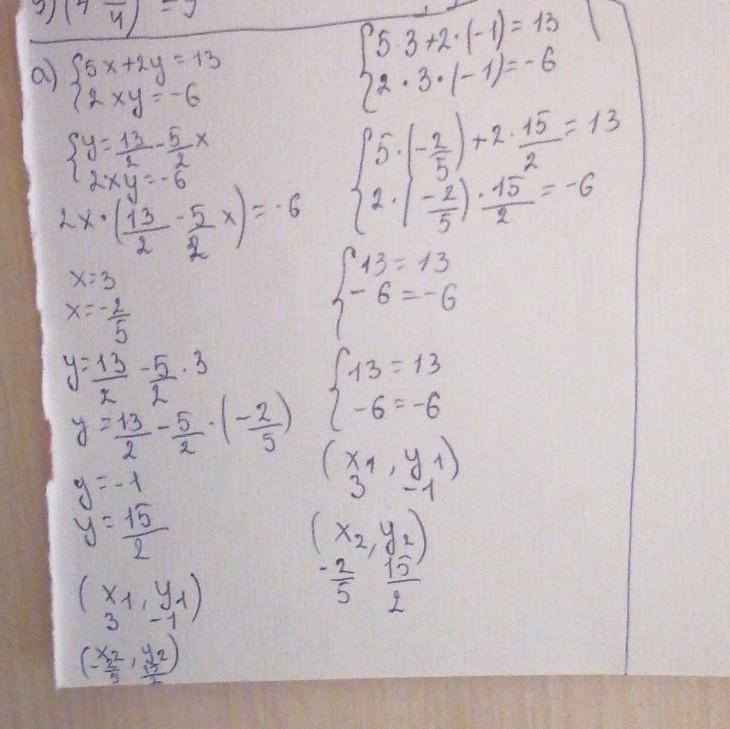 а) { 5x+2y=13
2xy=-6
{ y=13/2-5/2x
2xy=-6
2x·(13/2-5/2x)=-6
x=3
x=-2/5
y=13/2-5/2·3
y=13/2-5/2·(-2/5)
y=-1
y=15/2
(x1, y1)
3 -1
(x2, y2)
-2/5 15/2
{ 5·3+2·(-1)=13
2·3·(-1)=-6
{ 5·(-2/5)+2·15/2=13
2·(-2/5)·15/2=-6
{ 13=13
-6=-6
{ 13=13
-6=-6
(x1, y1)
3 -1
(x2, y2)
-2/5 15/2